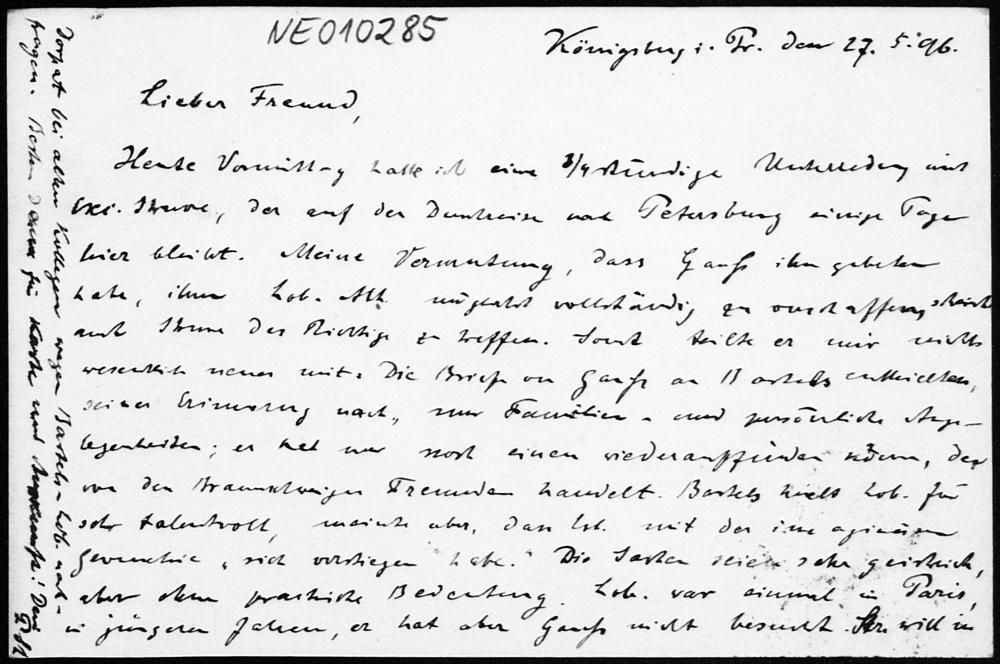 NE010285
Königsberg i. Pr. den 27. 5. 96.
Lieber Freund,
Heute Vormittag hatte ich eine 3/4 stündige Unterredung mit
Exc. Struve, der auf der Durchreise nach Petersburg einige Tage
hier bleibt. Meine Vermutung, dass Gauß ihn gebeten
habe, ihm Lob. Abh. möglichst vollständig zu verschaffen, scheint
nach Struve das Richtige zu treffen. Sonst teilte er mir nichts
wesentlich neues mit. Die Briefe von Gauß an Bartels enthielten,
seiner Erinnerung nach, nur Familien- und persönliche Ange-
legenheiten; er hat nur noch einen wiederauffinden können, der
von den Braunschweiger Freunden handelt. Bartels hielt Lob. für
sehr talentvoll, meinte aber, dass Lob. mit der imaginären
Geometrie „sich verstiegen habe.“ Die Sachen seien sehr geistreich,
aber ohne praktische Bedeutung. Lob. war einmal in Paris,
in jüngeren Jahren, er hat aber Gauß nicht besucht. Str. will in
Dorpat bei alten Kollegen wegen Bartels-Lob. nach-
fragen. Besten Dank für Karte und! Dein